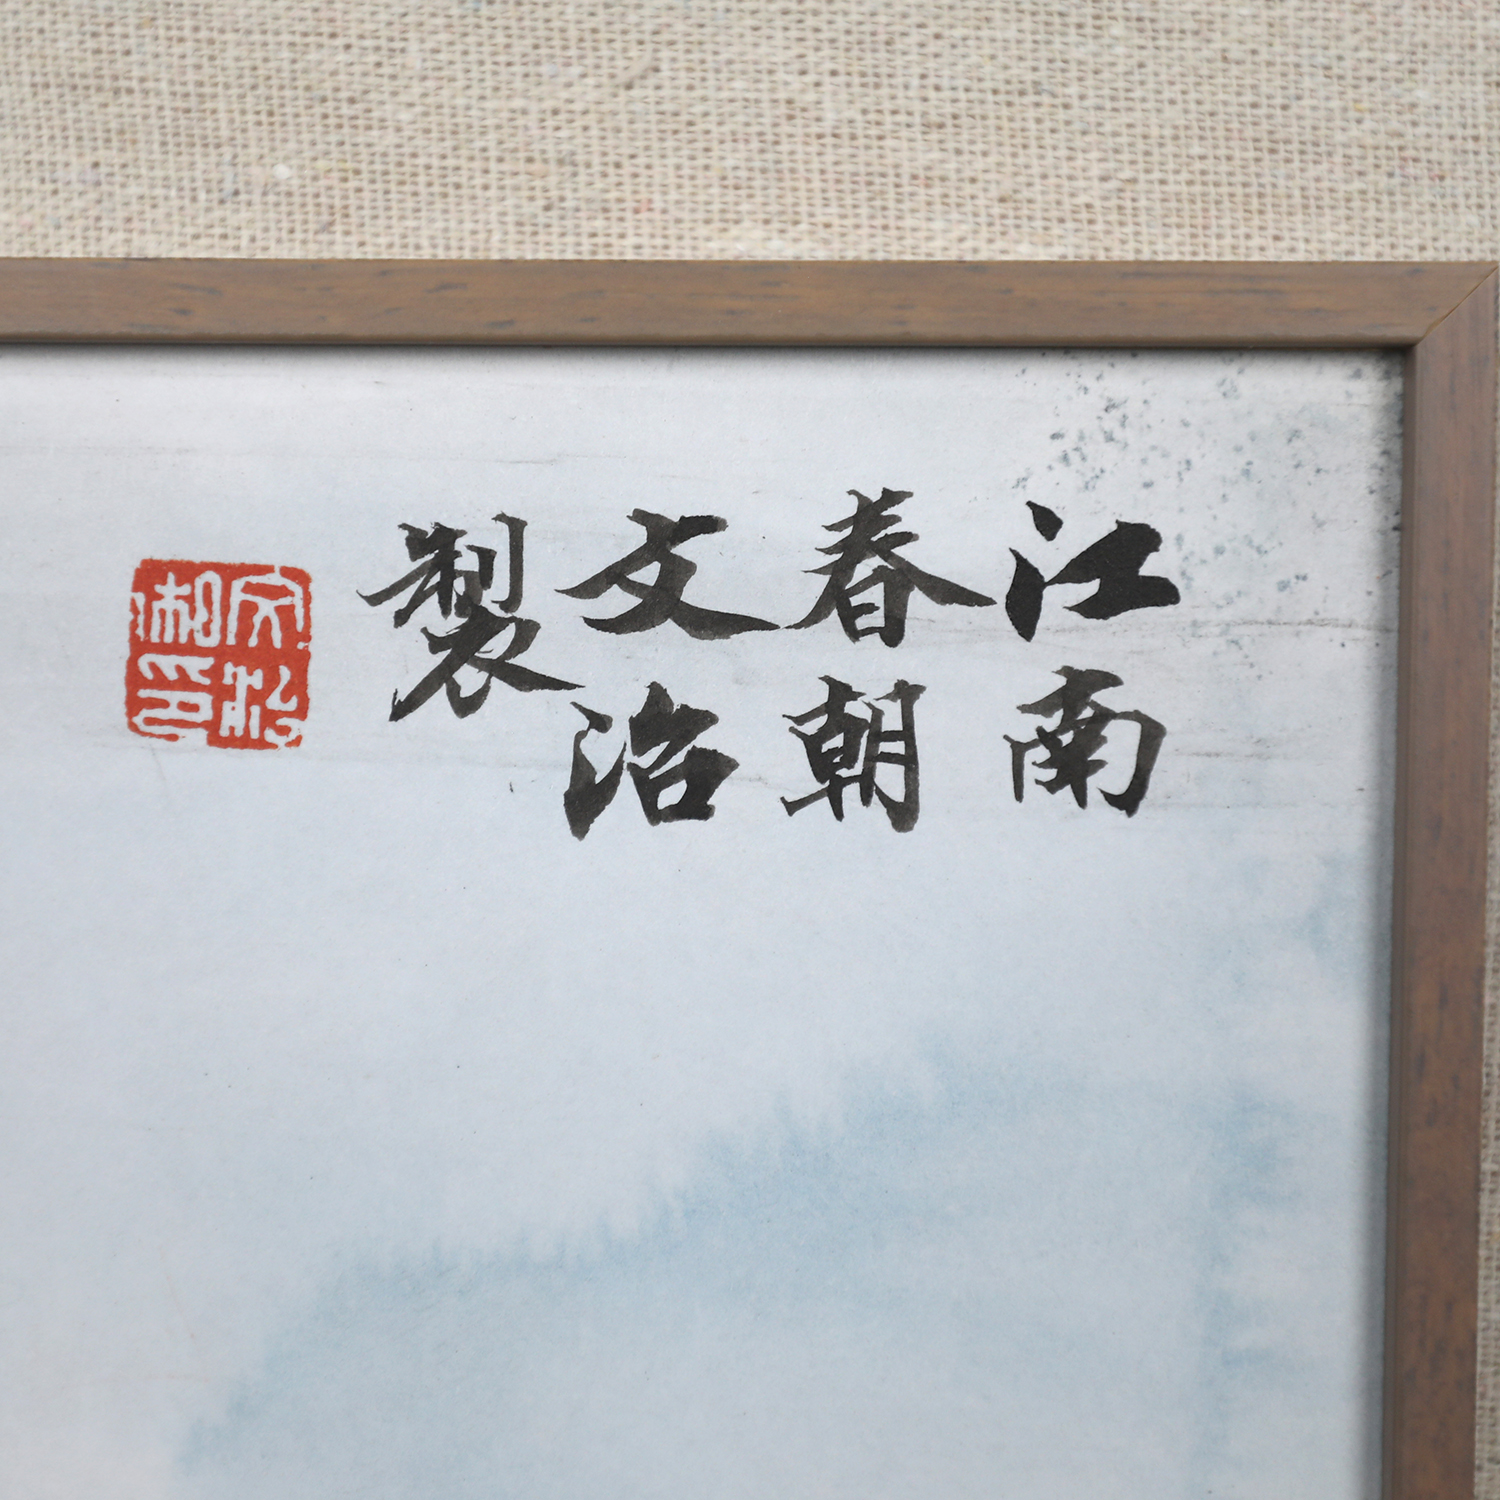 江南
春朝
文治
製